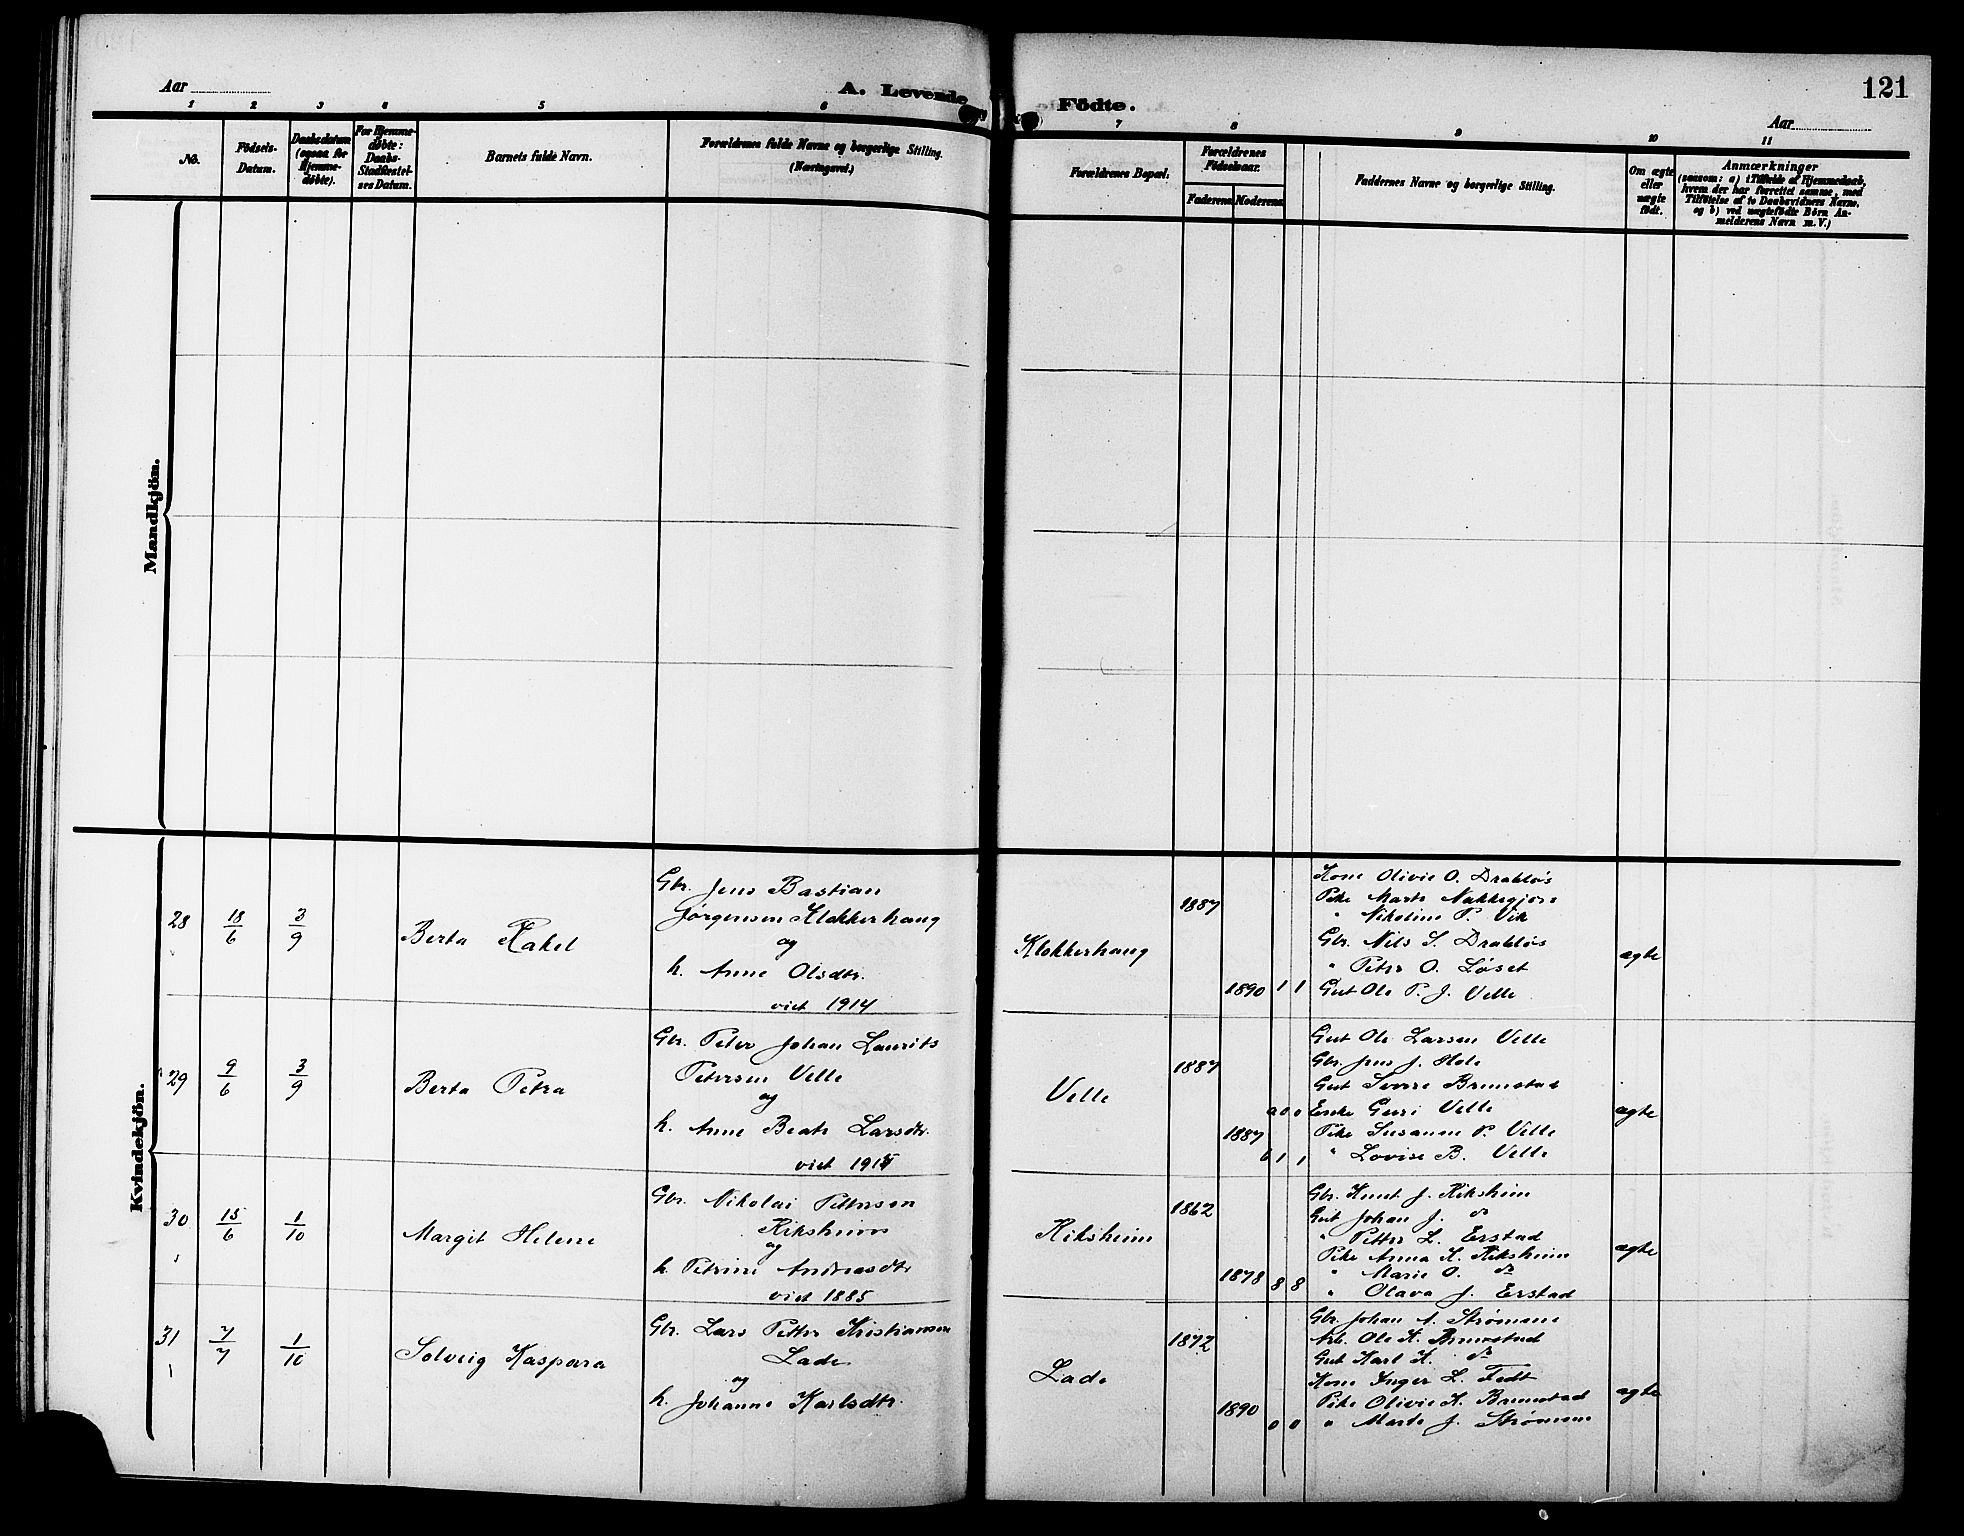 Aar
A. Levende Fødte.
121
Aar
1 2 3 4 5 6 7 8 9 10 11
No.
Fødsels-Datum.
Daabsdatum (ogsaa for Hjemme-døbte).
For Hjemme-døbte: Daabs-Stadfæstel-ses Datum.
Barnets fulde Navn.
Forældrenes fulde Navne og borgerlige Stilling. (Næringsvei.)
Forældrenes Bopæl.
Forældrenes Fødselsaar.
Faderens Moderens
Faddernes Navne og borgerlige Stilling.
Om ægte eller uægte født.
Anmærkninger
(saasom: a) i Tilfælde af Hjemmedaab,
hvem der har forrettet samme, med
Tilføielse af to Daabsvidners Navne,
og b) ved uægtefødte Børn An-
melderens Navn m. V.)
Mandkjön.
Kvindekjön.
28 18/6 3/9 Berta Rakel
Gbr. Jens Bastian
Jørgensen Klokkerhaug
og
h. Anne Olsdtr.
viet 1914
Klokkerhaug
1887
1890 1 1
Kone Olivie O. Drabløs
Pike Marte Nakkegjøre
" Nikoline P. Vik
Gbr. Nils S. Drabløs
" Peter O. Løset
Gut Ole P. J. Velle
ægte
29 9/6 3/9 Berta Petra
Gbr. Peter Johan Laurits
Petersen Velle
og
h. Anne Beate Larsdtr.
viet
Velle
1887
1887
Gut Ole Larsen Velle
Gbr. Jens J. Hole
Gut Sverre Brunstad
Enke Guri Velle
Pike Susanne P. Velle
" Lovise B. Velle
ægte
30 15/6 1/10 Margit Helene
Gbr. Nikolai Pettersen
Riksheim
og
h. Petrine Andreasdtr
viet 1885
Riksheim
1862
1878 8 8
Gbr. Knut J. Riksheim
Gut Johan J. do
" Petter L. Erstad
Pike Anna K. Riksheim
" Marie O. do
" Olava J. Erstad
ægte
31 7/7 1/10 Solveig Kaspara
Gbr. Lars Petter Kristiansen
Lade
og
h. Johanne Karlsdtr.
Lade
1872
1890 0 0
Gbr. Johan A. Strømme
Arb. Ole K. Brunstad
Gut Karl K. do
Kone Inger L. Fedt
Pike Olivie K. Brunstad
" Marte J. Strømme
ægte